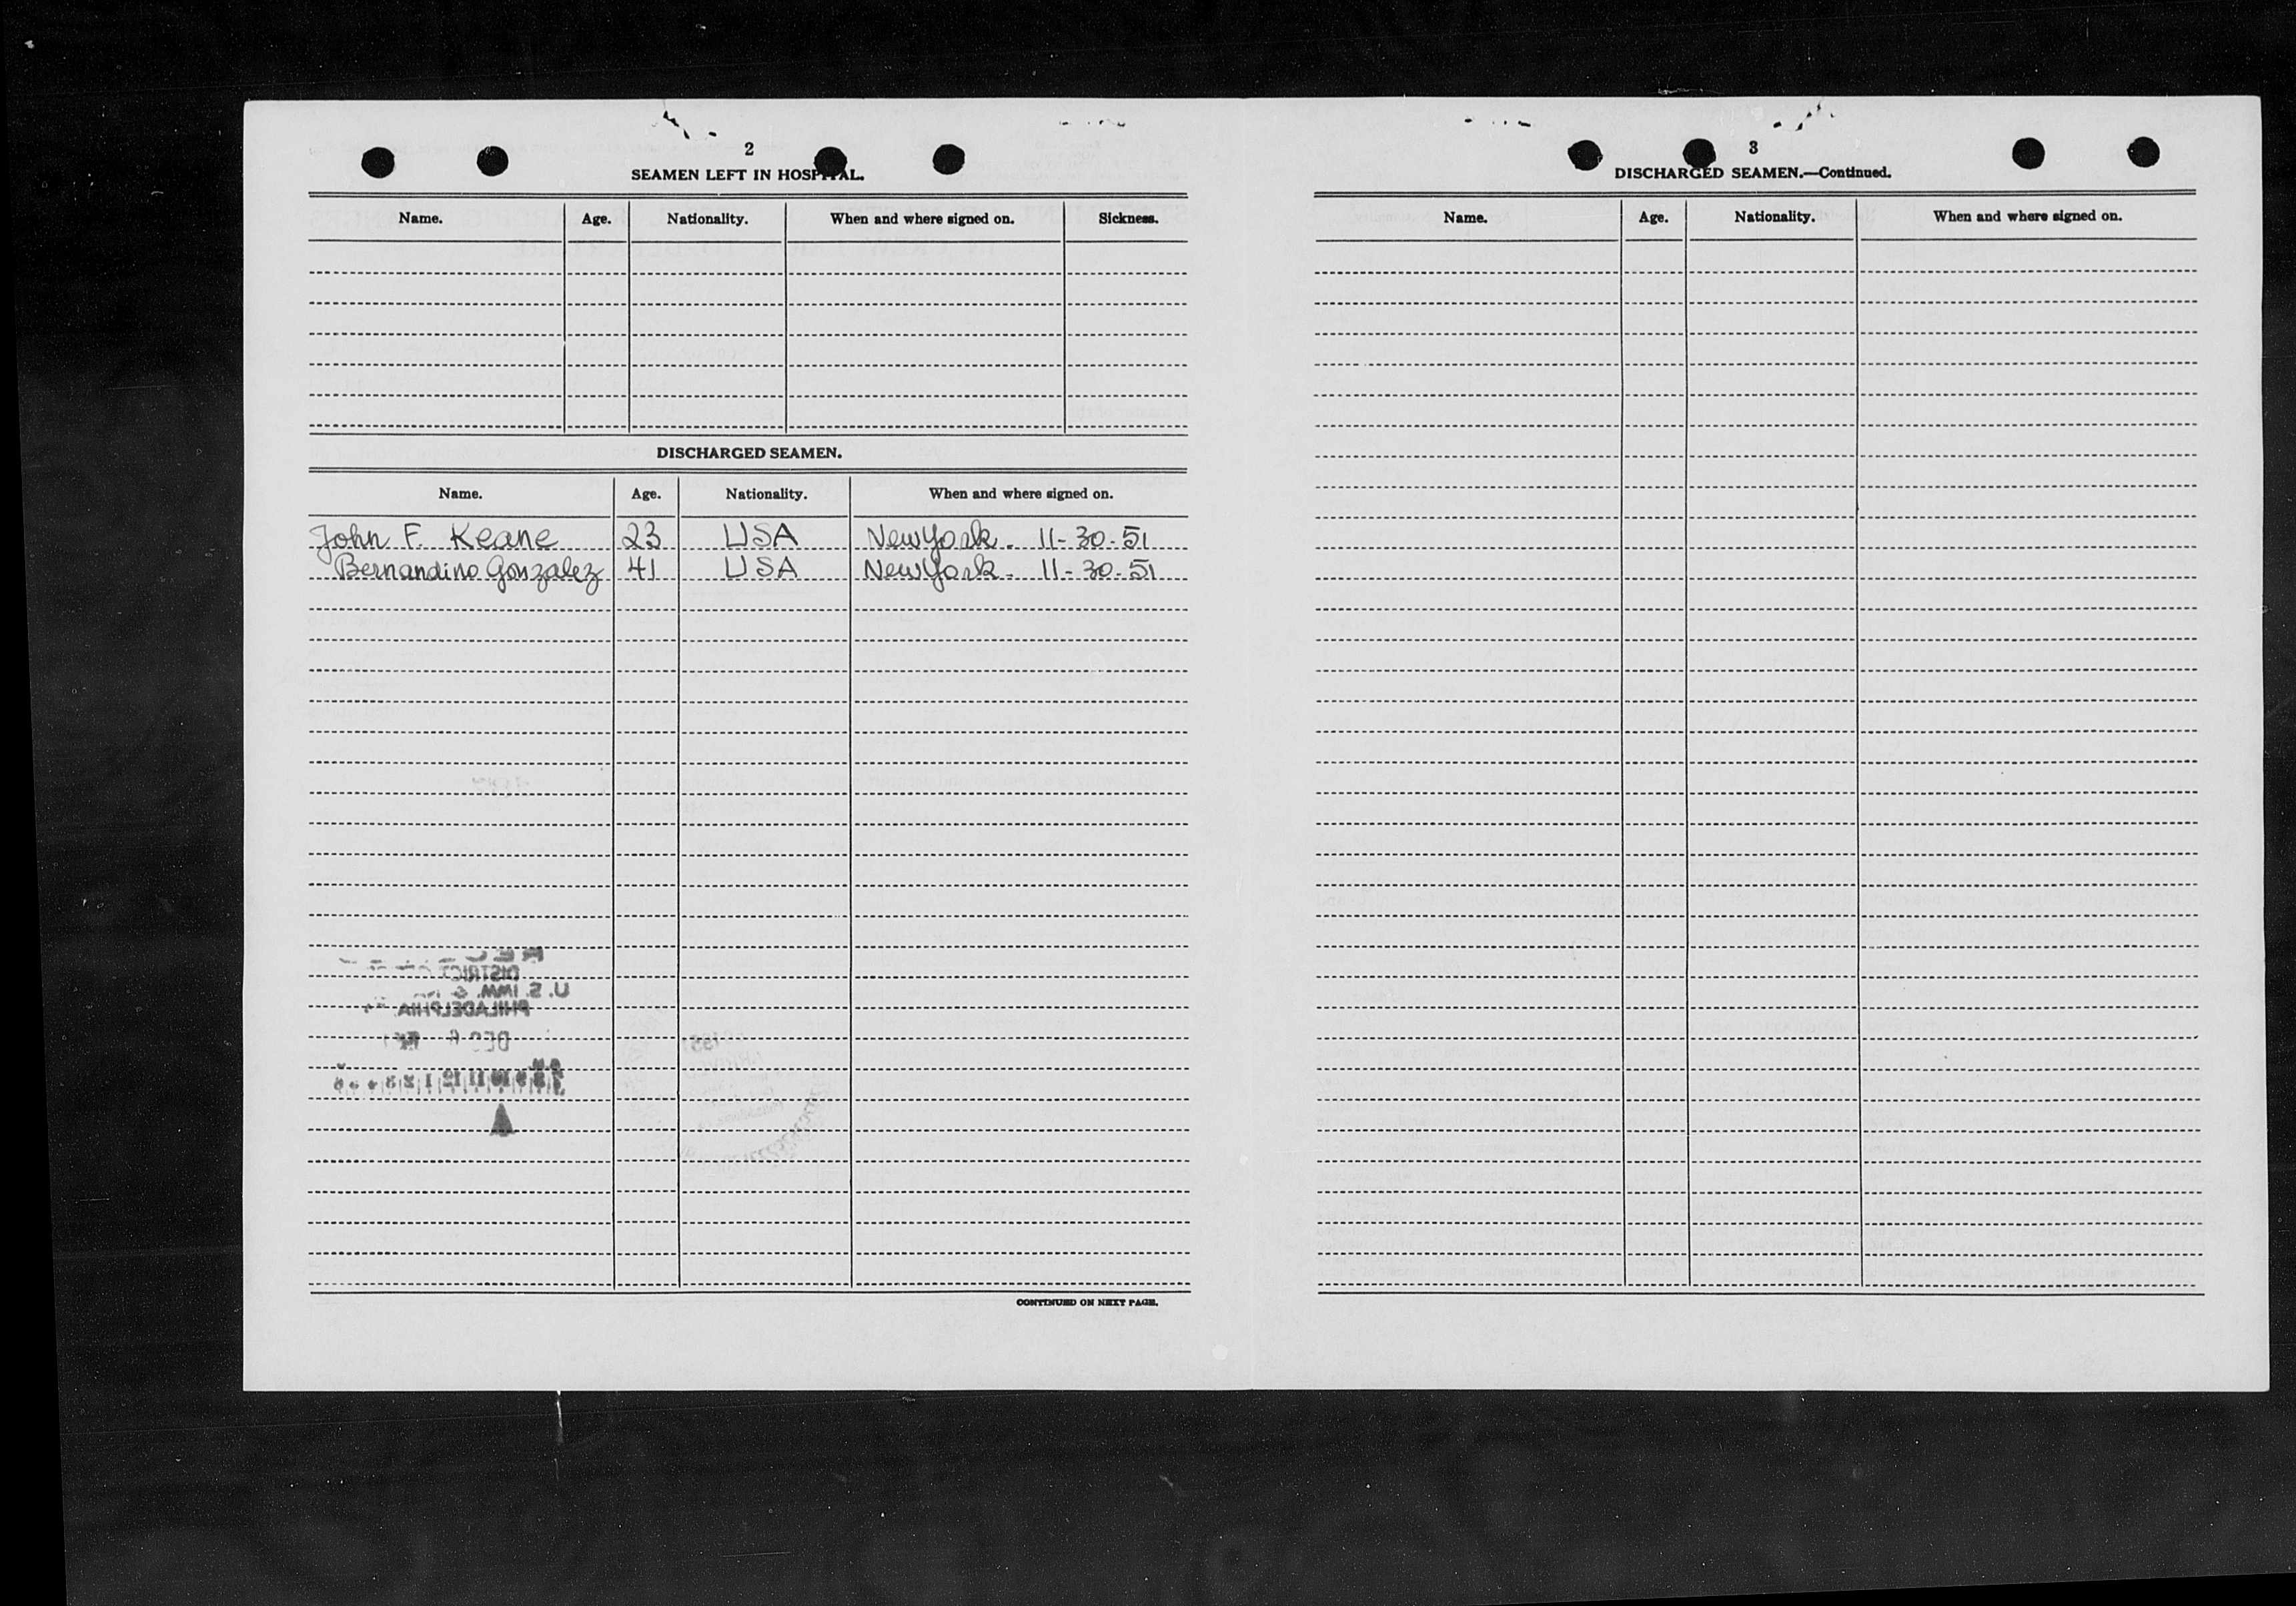 2
SEAMEN LEFT IN HOSPITAL.
Name. Age. Nationality. When and where signed on. Sickness.
DISCHARGED SEAMEN.
Name. Age. Nationality. When and where signed on.
John F. Keane 23 USA New York. 11-30-51
Bernandino Gonzalez 41 USA New York - 11-30-51
DISTRICT
U. S. IMM. &
PHILADELPHIA
DEC
CONTINUED ON NEXT PAGE.
3
DISCHARGED SEAMEN.—Continued.
Name. Age. Nationality. When and where signed on.